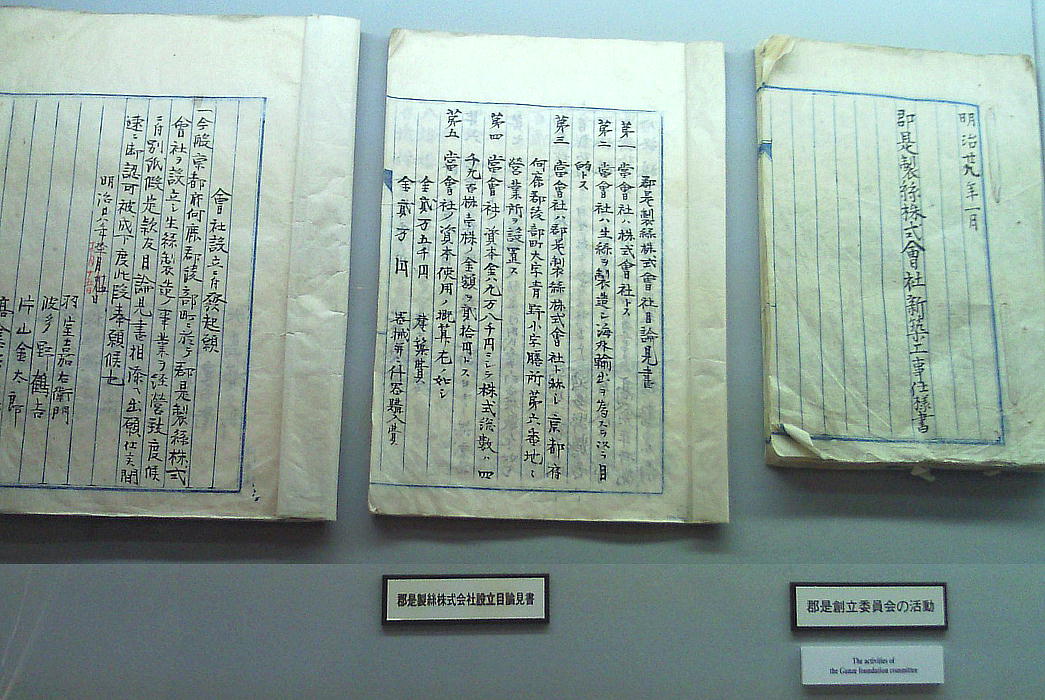 明治廿九年一月
郡是製絲株式會社新築工事仕様書
郡是製絲株式會社目論見書
第一 當會社ハ株式會社トス
第二 當會社ハ生絲ヲ製造シ海外輸出ヲ為スヲ以テ目
的トス
第三 當會社ハ郡是製絲株式會社ト稱シ京都府
何鹿郡綾部町大字青野小字膳所第六番地ニ
營業所ヲ設置ス
第四 當會社ノ資本金ハ九万八千円ニシテ株式総数ハ四
千九百株壱株ノ金額ヲ貳拾円トス
第五 當會社ノ資本使用ノ概算左ノ如シ
金貳万五千円 建築費
金貳万円 器械并ニ什器購入費
會社設立ニ付發起願
一今般京都府何鹿郡綾部町ニ於テ郡是製絲株式
會社ヲ設立シ生絲製造ノ事業ヲ経營致度候
ニ付別紙假定款及目論見書相添出願仕候間
速ニ御認可被成下度此段奉願候也
明治廿八年 月 日
羽室嘉右衛門
波多野鶴吉
片山金太郎
郡是製絲株式会社設立目論見書
郡是創立委員会の活動
The activities of
the Gunze foundation committee